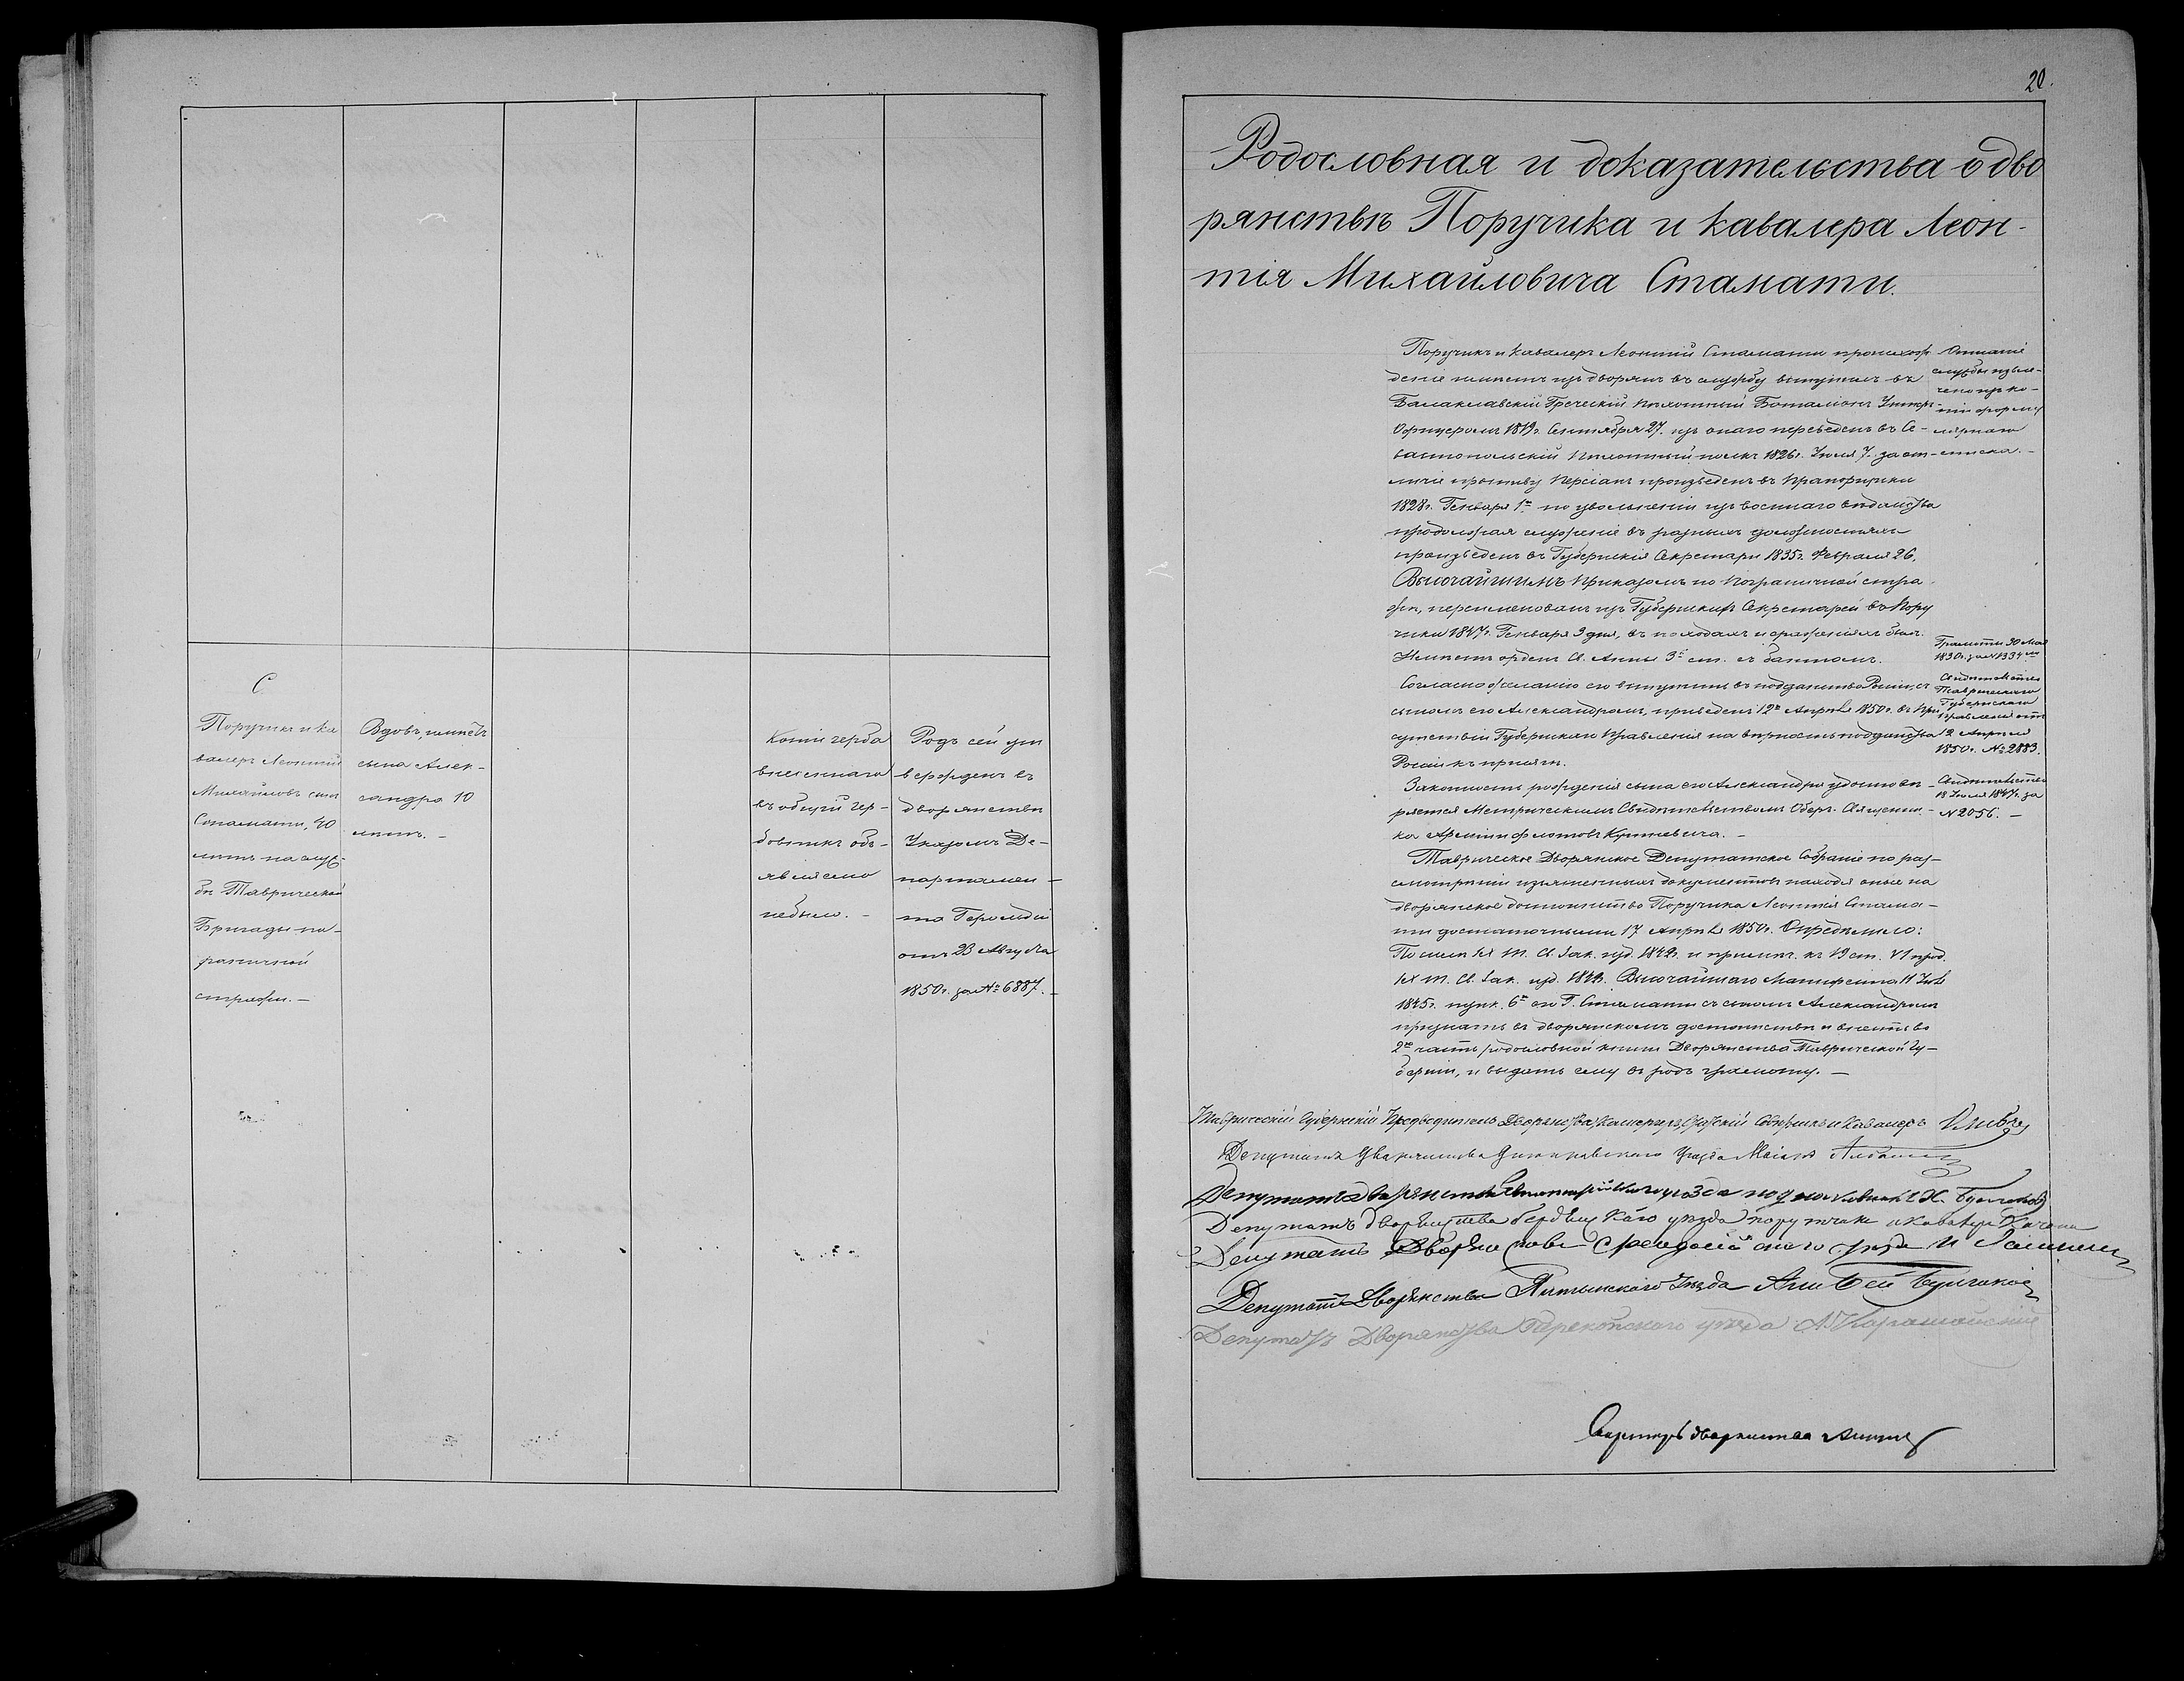 С
Поручикъ и ка
валеръ Леонтій
Михайловъ сынъ
Стамати, 40
лѣтъ на служ-
бѣ Таврической
Бригады по-
граничной
стражи. —
Вдовъ, имѣетъ
сына Алек-
сандра 10
лѣтъ. —
Копіи герба
внесеннаго
въ общій гер-
бовникъ объ-
явлено
небыло. —
Родъ сей ут
вержденъ въ
дворянствѣ
Указомъ Де-
партамен-
та Герольдіи
отъ 23 Августа
1850 г. за № 6887. —
20.
Родословная и доказательства о дво
рянствѣ Поручика и кавалера Леон-
тія Михайловича Стамати.
Поручикъ и Кавалеръ Леонтій Стамати происхож-
деніе имѣетъ изъ дворянъ въ службу вступилъ въ
Балаклавскій Греческій Пѣхотный Баталіонъ Унтеръ-
Офицеромъ 1819 г. Сентября 27. изъ онаго переведенъ въ Се-
вастопольскій Пѣхотный полкъ 1826 г. Іюля 7. за от-
личіе противу Персіанъ произведенъ въ Прапорщики
1828 г. Генваря 1го по увольненіи изъ военнаго вѣдомства
продолжая служеніе въ разныхъ должностяхъ
произведенъ въ Губернскіе Секретари 1835 г. Февраля 26.
Высочайшимъ Приказомъ по Пограничной стра-
жѣ, переименованъ изъ Губернскихъ Секретарей въ Пору
чики 1847 г. Генваря 3 дня, въ походахъ и сраженіяхъ былъ.
Имѣетъ орденъ Св. Анны 3й ст. съ бантомъ.
Согласно желанію его вступить въ подданство Россіи, съ
сыномъ его Александромъ, приведенъ 12го Апрѣля 1850 г. въ При
сутствіи Губернскаго Правленія на вѣрность подданства
Россіи къ присягѣ.
Законность рожденія сына его Александра удостовѣ-
ряется Метрическимъ Свидѣтельствомъ Оберъ-Священни-
ка Арміи и флотовъ Кутневича. —
Таврическое Дворянское Депутатское Собраніе по раз-
смотрѣніи изъясненныхъ документовъ находя оные на
дворянское достоинство Поручика Леонтія Стама-
ти достаточными 17 Апрѣля 1850 г. Опредѣлило:
По силѣ IX Т. Св. Зак. изд. 1842 г. и примѣч. къ 19 ст. VI прод.
IX т. Св. Зак. изд. 1842 г. Высочайшаго Манифеста 11 Іюня
1845 г. пунк. 6го его Г. Стамати съ сыномъ Александромъ
признать въ дворянскомъ достоинствѣ и внести во
2ю часть родословной книги Дворянства Таврической Гу-
берніи, и выдать ему въ родъ грамоту. —
Описаніе
службы извле-
чено изъ ко-
піи форму
лярнаго
списка. —
Грамоты 30 Мая
1830 г. за №
Свидѣтельство
Таврическаго
Губернскаго
Правленія отъ
12 Апрѣля
1850 г. № 2883.
Свидѣтельство
13 Іюля 1847 г. за
№ 2056. —
Таврическій Губернскій Предводитель Дворянства, Камергеръ, Статскій Совѣтникъ и Кавалеръ
Депутатъ Дворянства Днѣпровскаго Уѣзда Маіоръ
Депутатъ дворянства Евпаторійскаго уѣзда подполковникъ К.
Депутатъ дворянства Бердянскаго уѣзда поручикъ и кавалеръ
Депутатъ Дворянства Феодосійскаго уѣзда
Депутатъ Дворянства Ялтинскаго Уѣзда Али Бей Булгаковъ
Депутатъ Дворянства Перекопскаго уѣзда А. Карашайскій
Секретарь дворянства